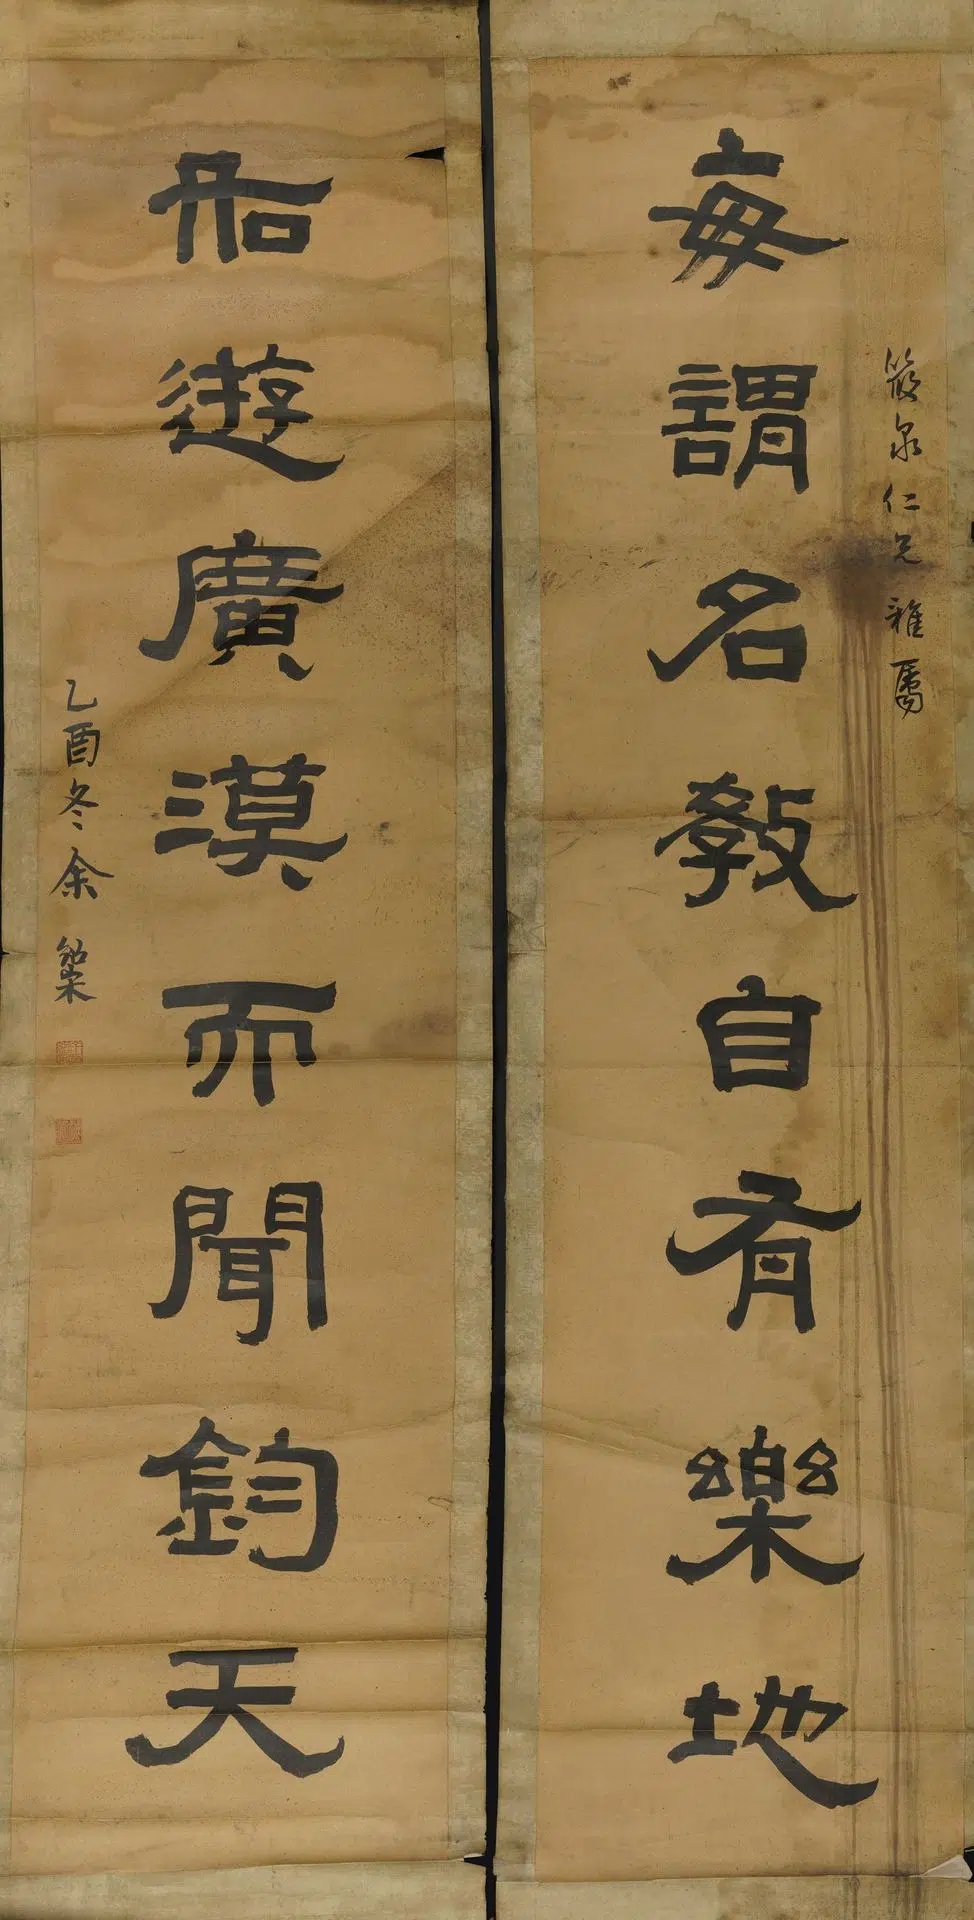 筱泉仁兄雅屬
每謂名教自有樂地
如遊廣漠而聞鈞天
乙酉冬余紹宋